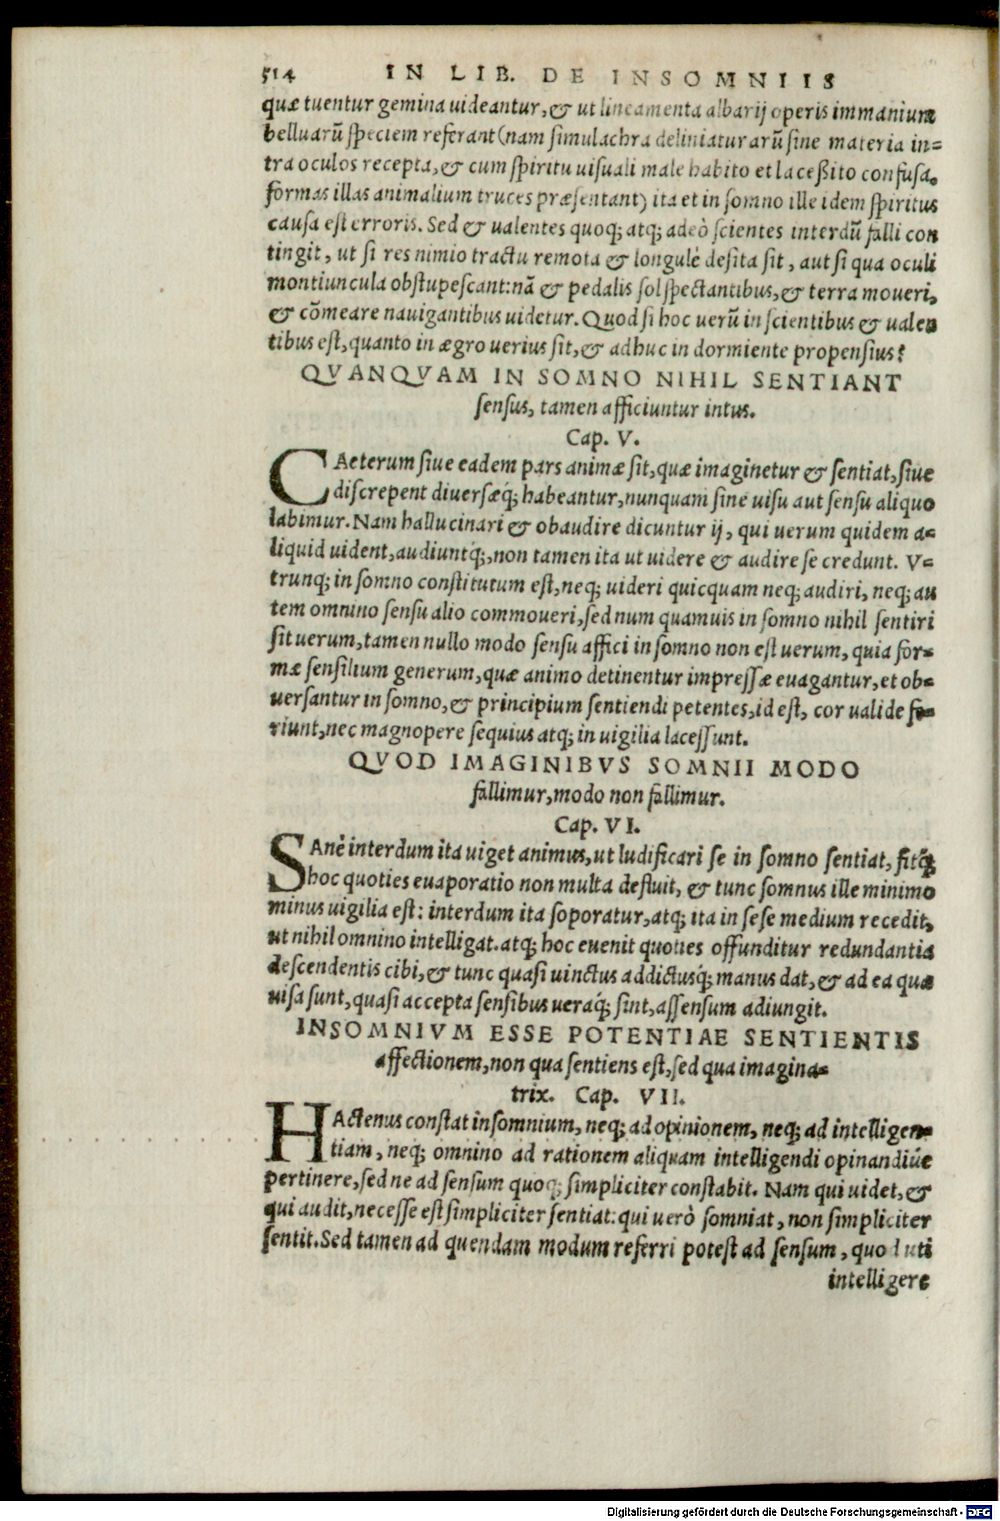 514 IN LIB. DE INSOMNIIS
quæ tuentur gemina uideantur, & ut lineamenta albarij operis immanium
belluarũ speciem referant (nam simulachra deliniaturarũ sine materia in=
tra oculos recepta, & cum spiritu uisuali male habito et laceßito confusa.
formas illas animalium truces præsentant) ita et in somno ille idem spiritus
causa est erroris. Sed & ualentes quoq; atq; adeò scientes interdũ falli con
tingit, ut si res nimio tractu remota & longulè desita sit, aut si qua oculi
montiuncula obstupescant: nã & pedalis sol spectantibus, & terra moueri,
& cõmeare nauigantibus uidetur. Quod si hoc uerũ in scientibus & ualen
tibus est, quanto in ægro uerius sit, & adhuc in dormiente propensius?
QVANQVAM IN SOMNO NIHIL SENTIANT
sensus, tamen afficiuntur intus.
Cap. V.
CAeterum siue eadem pars animæ sit, quæ imaginetur & sentiat, siue
discrepent diuersæq́; habeantur, nunquam sine uisu aut sensu aliquo
labimur. Nam hallucinari & obaudire dicuntur ij, qui uerum quidem a=
liquid uident, audiuntq́;, non tamen ita ut uidere & audire se credunt. V=
trunq; in somno constitutum est, neq; uideri quicquam neq; audiri, neq; au
tem omnino sensu alio commoueri, sed num quamuis in somno nihil sentiri
sit uerum, tamen nullo modo sensu affici in somno non est uerum, quia for=
mæ sensilium generum, quæ animo detinentur impressæ euagantur, et ob=
uersantur in somno, & principium sentiendi petentes, id est, cor ualide fe=
riunt, nec magnopere sequius atq; in uigilia lacessunt.
QVOD IMAGINIBVS SOMNII MODO
fallimur, modo non fallimur.
Cap. VI.
SAnè interdum ita uiget animus, ut ludificari se in somno sentiat, fitq́;
hoc quoties euaporatio non multa defluit, & tunc somnus ille minimo
minus uigilia est: interdum ita soporatur, atq; ita in sese medium recedit,
ut nihil omnino intelligat. atq; hoc euenit quoties offunditur redundantia
descendentis cibi, & tunc quasi uinctus addictusq; manus dat, & ad ea quæ
uisa sunt, quasi accepta sensibus ueraq́; sint, assensum adiungit.
INSOMNIVM ESSE POTENTIAE SENTIENTIS
affectionem, non qua sentiens est, sed qua imagina=
trix. Cap. VII.
HActenus constat insomnium, neq; ad opinionem, neq; ad intelligen=
tiam, neq; omnino ad rationem aliquam intelligendi opinandiúe
pertinere, sed ne ad sensum quoq; simpliciter constabit. Nam qui uidet, &
qui audit, necesse est simpliciter sentiat: qui uerò somniat, non simpliciter
sentit. Sed tamen ad quendam modum referri potest ad sensum, quod uti
intelligere
Digitalisierung gefördert durch die Deutsche Forschungsgemeinschaft - DFG